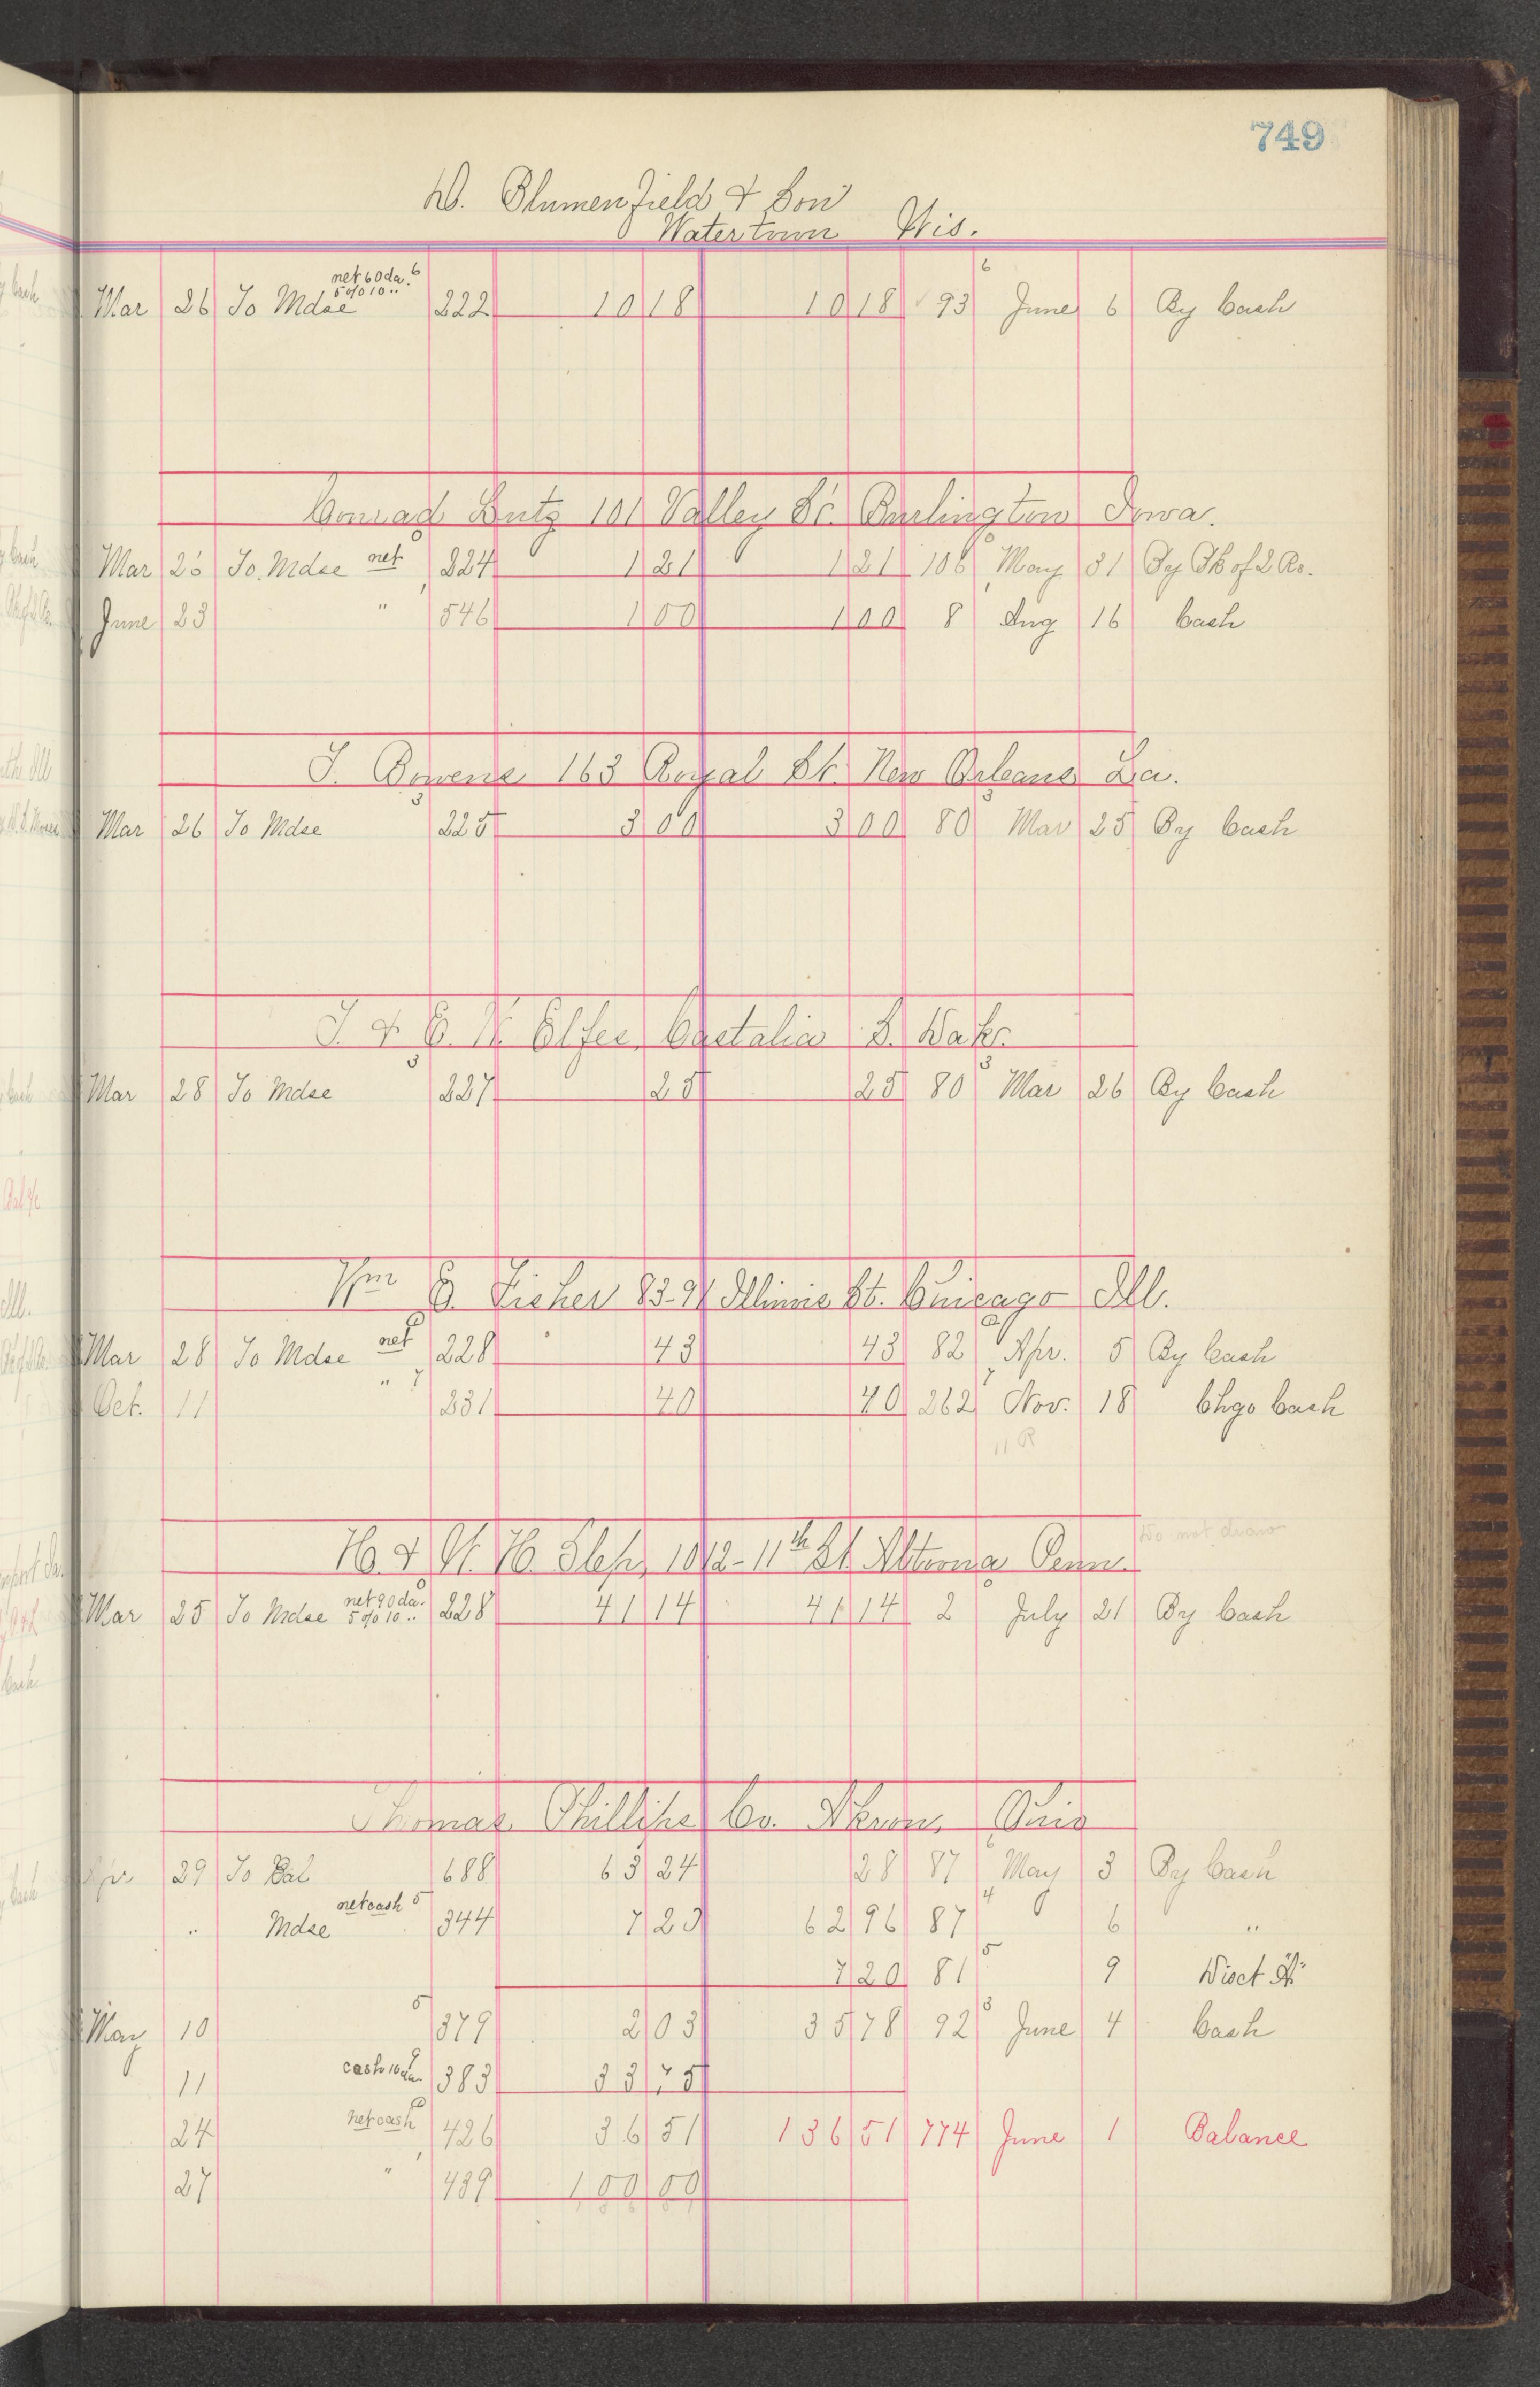 749
D. Blumenfield & Son
Watertown Wis.
net 60 da. 6 6
5 % 10 ..
Mar 26 To Mdse 222 10 18 10 18 ✓ 93 June 6 By Cash
Conrad Lutz 101 Valley St. Burlington Iowa.
Mar 25 To Mdse net 224 1 21 1 21 106 May 31 By Bk of 2 Rs.
June 23 " 546 1 00 1 00 8 Aug 16 Cash
J. Bowens 163 Royal St. New Orleans La.
3 3
Mar 26 To Mdse 225 3 00 3 00 80 Mar 25 By Cash
J. & E. W. Elfes, Castalia S. Dak.
3 3
Mar 28 To Mdse 227 25 25 80 Mar 26 By Cash
Wm G. Fisher 83-91 Illinois St. Chicago Ill.
Mar 28 To Mdse net 228 43 43 82 Apr. 5 By Cash
" 7 7
Oct. 11 231 40 40 262 Nov. 18 Chgo Cash
11 R
H. & W. H. Slep, 1012-11th St. Altoona Penn. Do not draw
net 90 da.
5 % 10 ..
Mar 25 To Mdse 228 41 14 41 14 2 July 21 By Cash
Thomas Phillips Co. Akron, Ohio
29 To Bal 688 63 24 28 87 May 3 By Cash
net cash 5 4
.. Mdse 344 7 20 62 96 87 6 "
5
7 20 81 9 Disct
5 3
May 10 379 2 03 35 78 92 June 4 Cash
11 cash 10 da. 383 33 75
24 net cash 426 36 51 136 51 774 June 1 Balance
27 " 439 100 00